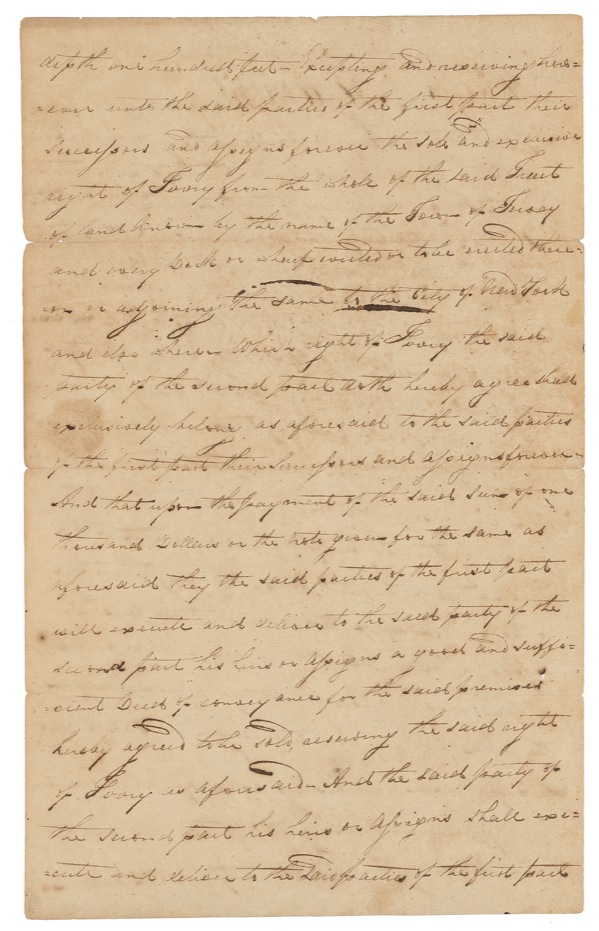 depth one hundred feet – Excepting and reserving here=
=over unto the said parties of the first part their
successors and assigns forever the sole and exclusive
right of Ferry from the whole of the said Tract
of land known by the name of the Town of Jersey
and every Dock or wharf erected or to be erected there=
=on or adjoining the same to the City of New York
and else where. Which right of Ferry the said
party of the second part doth hereby agree shall
exclusively belong as aforesaid to the said parties
of the first part their Successors and assigns forever –
And that upon the payment of the said sum of one
thousand Dollars or the note given for the same as
aforesaid they the said parties of the first part
will execute and deliver to the said party of the
second part his heirs or assigns a good and suffi=
=cient Deed of conveyance for the said premises
hereby agreed to be sold, reserving the said right
of Ferry as aforesaid – And the said party of
the second part his heirs or assigns shall exe=
=cute and deliver to the said parties of the first part